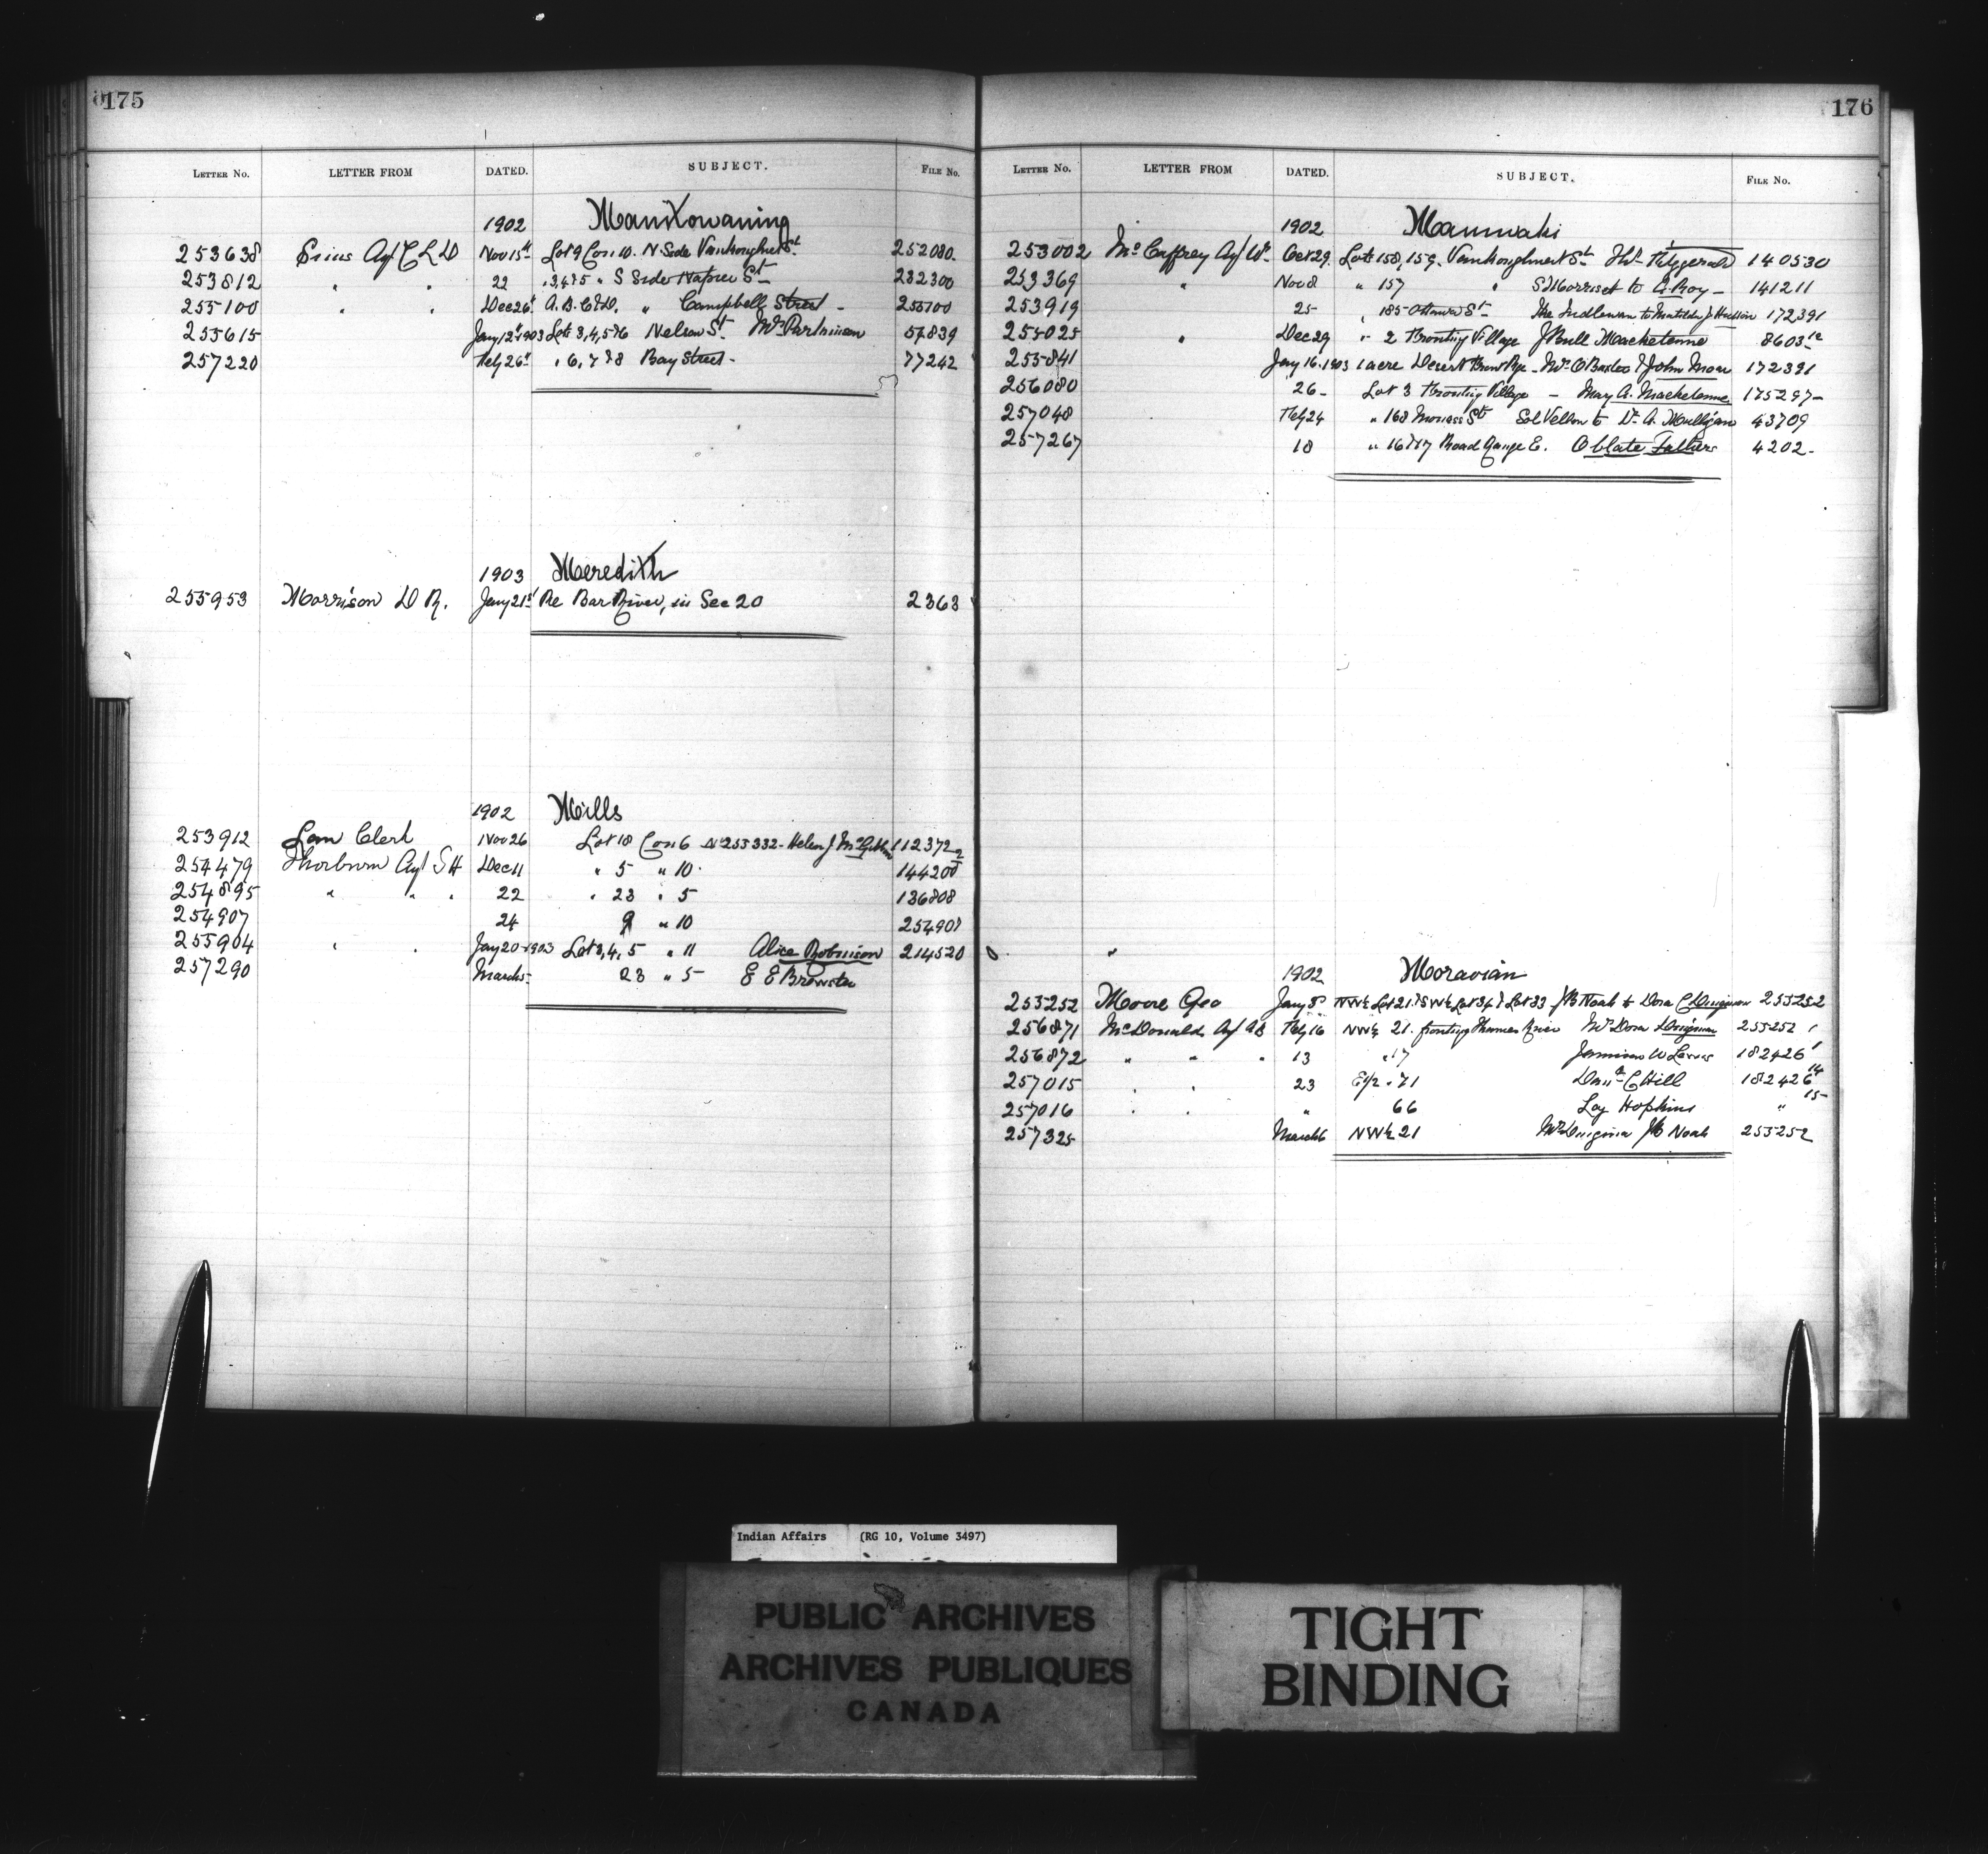 175
LETTER No. LETTER FROM DATED. SUBJECT. FILE No.
1902 Manitowaning
253638 Sims Agt C L D Nov 15th Lot 9 Con 10. N. Side Vankoughnet St. 252080.
253812 " " 22 " 3, 4 & 5 " S Side Napier St 232300
255100 " " Dec 26th A. B. C & D. " Campbell Street - 255100
255615 Jany 12th 1903 Lots 3, 4, 5 & 6 Nelson St. Mrs Parkinson 57839
257220 Feby 26th " 6, 7 & 8 Bay Street - 77242
1903 Meredith
255953 Morrison D R. Jany 21st Re Bar River, in Sec 20 2363
1902 Mills
253912 Law Clerk Nov 26 Lot 18 Con 6 No 253332 - Helen J McGibbon 112372
254479 Thorburn Agt S H Dec 11 " 5 " 10. 144200
254895 " " " 22 " 23 " 5 136808
254907 24 9 " 10 254907
255904 " " Jany 20 1903 Lot 3, 4, 5 " 11 Alice Robinson 214520
257290 March 5 23 " 5 E E Brewster
176
LETTER No. LETTER FROM DATED. SUBJECT. FILE No.
1902 Maniwaki
253002 McCaffrey Agt W. Oct 29. Lots 158, 159. Vankoughnet St Fitzgerald 140530
253369 " Nov 8 " 157 " S Morriset to A. Roy - 141211
253919 25 " 185 Ottawa St to Matilda J 172391
255025 " Dec 29 " 2 Fronting Village J Bull Macketenne 8603 12
255841 Jany 16. 1903 1 acre Desert Front Rge - & John Moar 172391
256080 26 - Lot 3 Fronting Village - May A. Macketenne 175297 -
257048 Feb 24 " 168 St to Dr A. Mulligan 43709
257267 18 " 16 & 17 Road Range E. Oblate Fathers 4202 -
"
1902 Moravian
255252 Moore Geo Jany 8th NW¼ Lot 21 & SW¼ Lot 34 & Lot 33 J B Noah to Dora C 255252
256871 McDonald Agt A R Feby 16 NW¼ 21. fronting Thames River Mrs Dora 255252 1
256872 " " " 13 " 17 Jamieson W 182426 1
257015 " " 23 E½ " 71 C Hill 182426 14
257016 " " " 66 Loy Hopkins " 15
257325 March 6 NW¼ 21 J B Noah 255252
Indian Affairs (RG 10, Volume 3497)
PUBLIC ARCHIVES
ARCHIVES PUBLIQUES
CANADA
TIGHT
BINDING